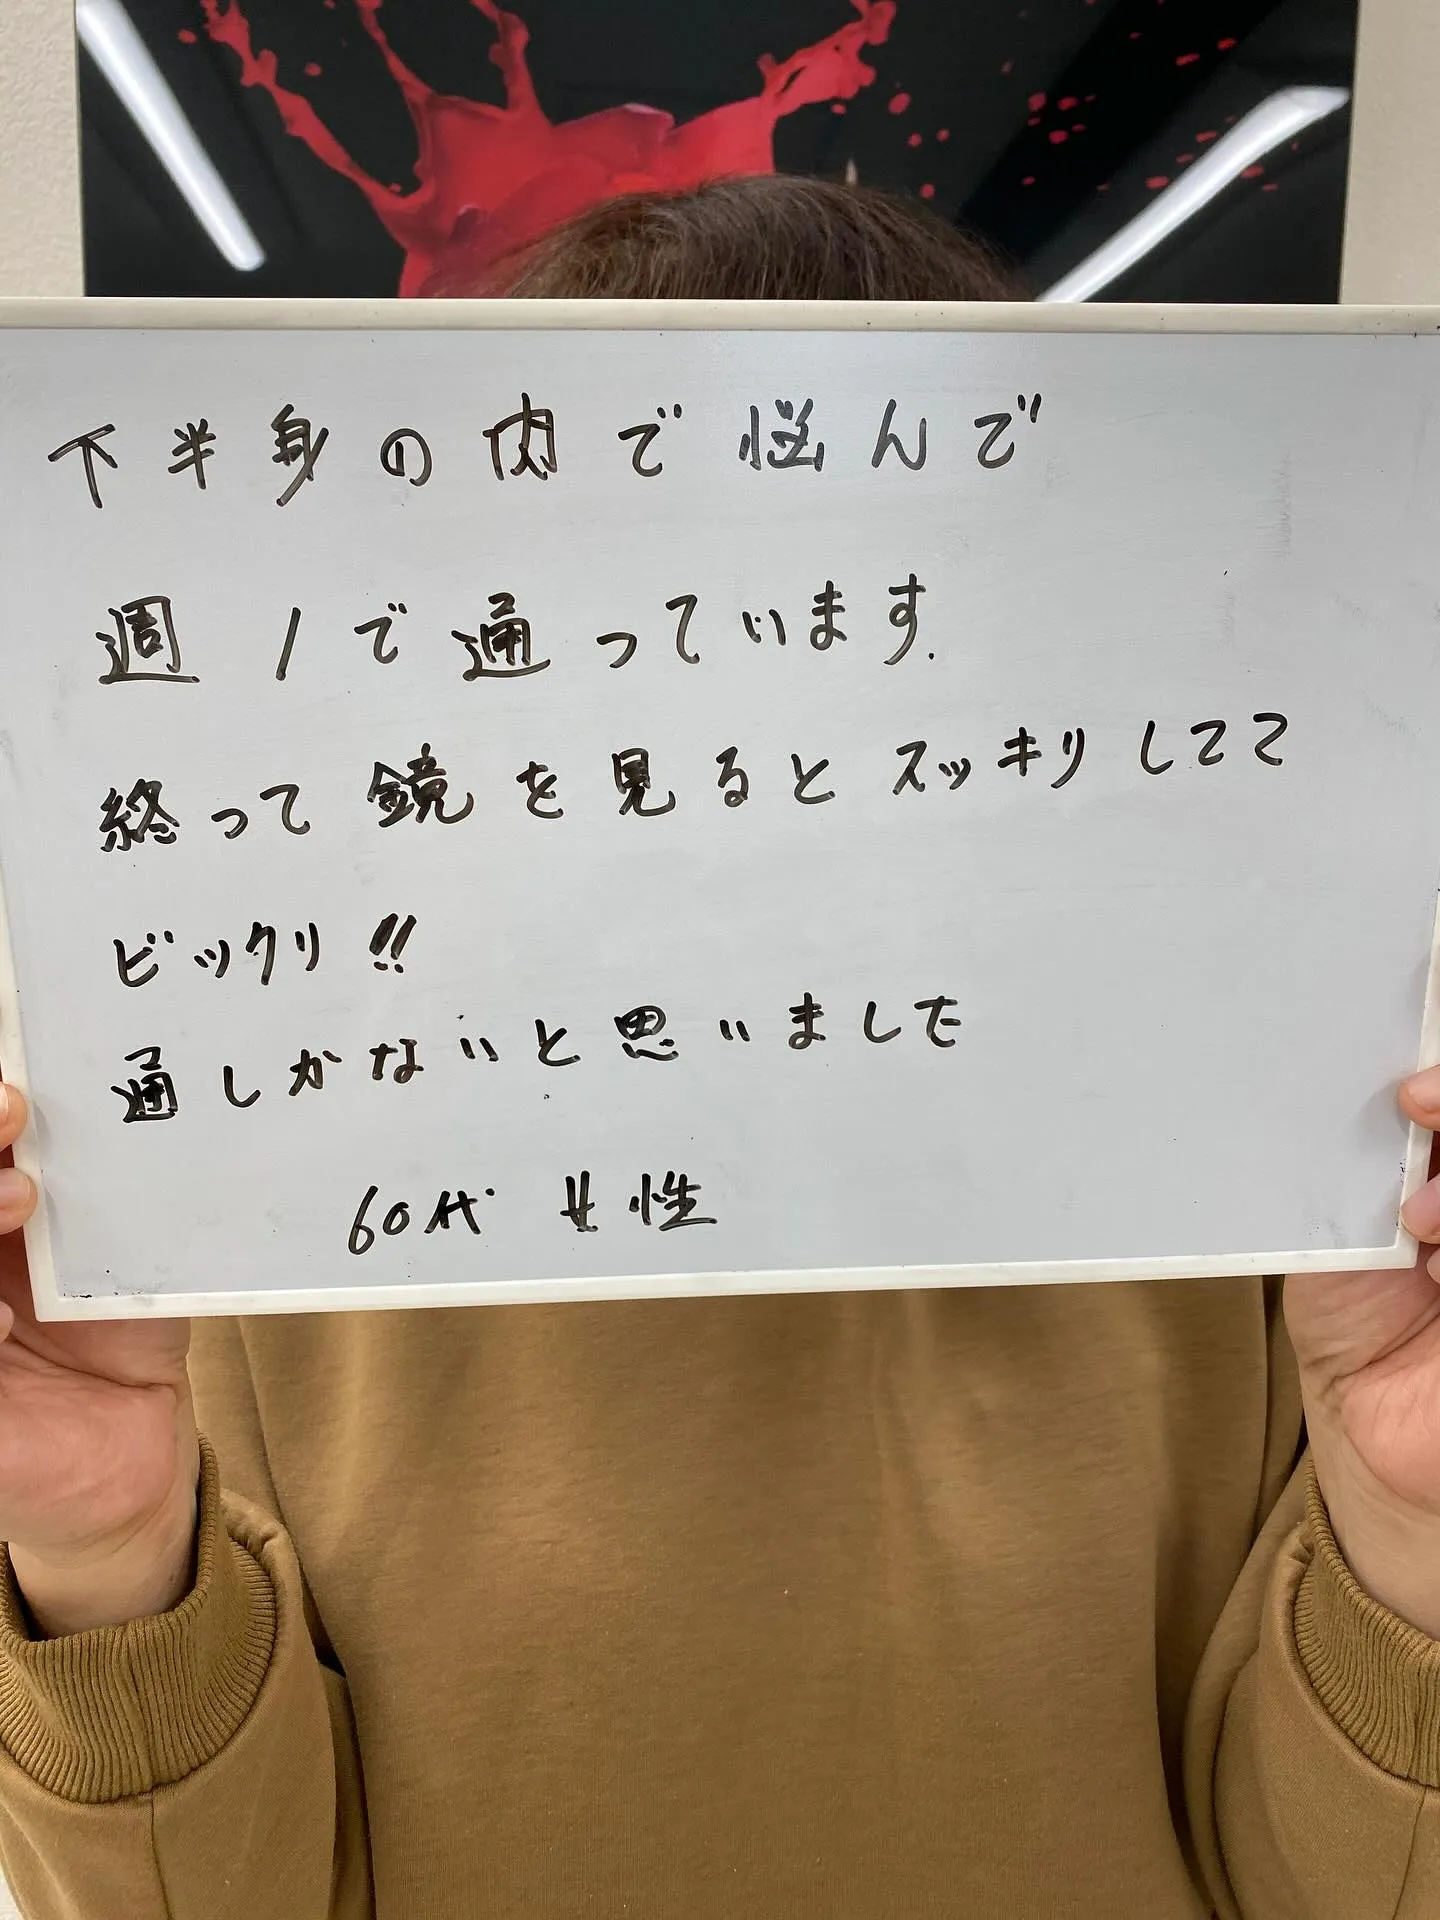 下半身の肉で悩んで
週1で通っています.
終って鏡を見るとスッキリしてて
ビックリ!!
通しかないと思いました
60代 女性